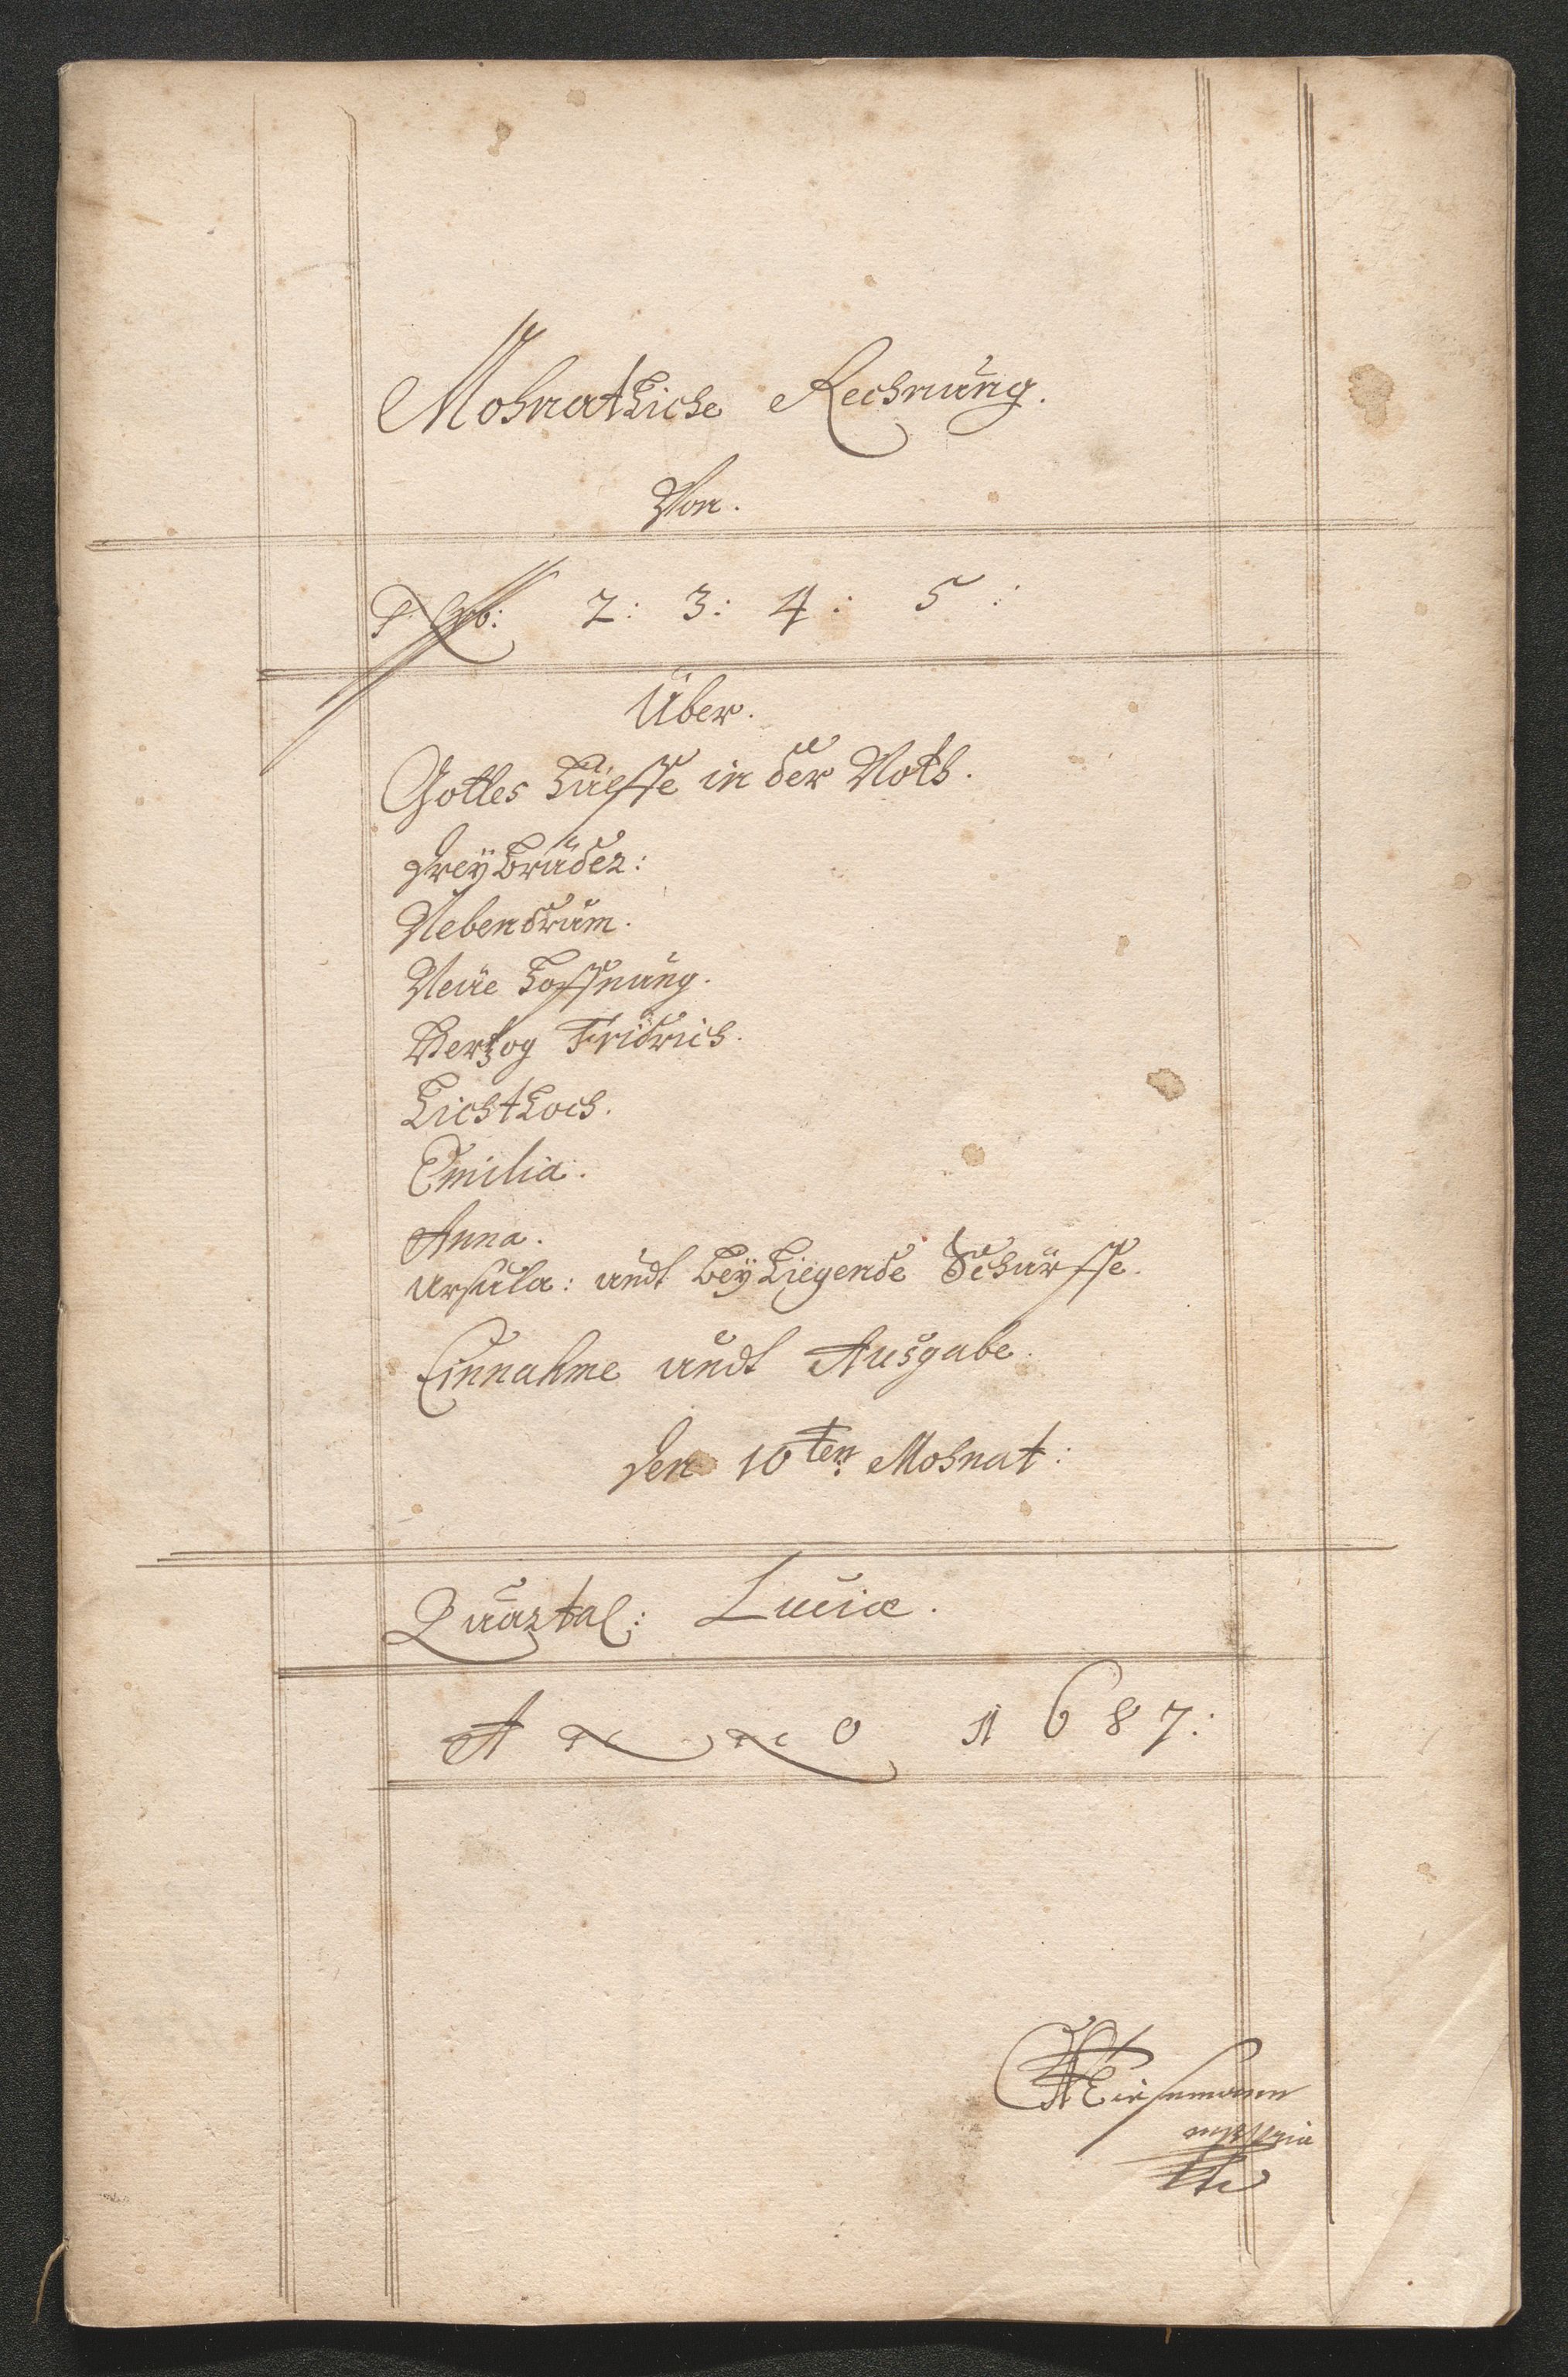 Mohnatliche Rechnung.
Von.
2: 3: 4: 5:
Über.
Gottes hülffe in der Noth.
Dreÿ Brüder:
Nebendrüm.
Neüe hoffnung.
Hertzog Fridrich.
Lichtloch.
Emilia.
Anna.
Ursula: undt beÿ Liegende Schürffe.
Einnahme undt Ausgabe.
Den 10ten Mohnat:
Quartal: Luciæ.
Anno 1687: